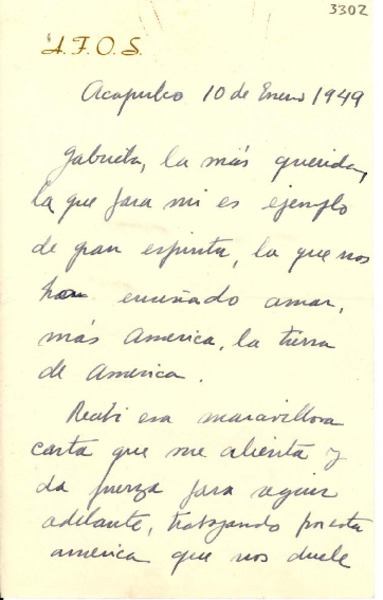 3302
A.F.O.S.
Acapulco 10 de Enero 1949
Gabriela, la más querida,
la que para mi es ejemplo
de gran espiritu, la que nos
han enseñado amar,
más America, la tierra
de America.
Recibi esa maravillosa
carta que me alienta y
da fuerza para seguir
adelante, trabajando por esta
america que nos duele